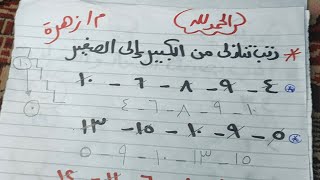 (الحمد لله) م/ زهرة
* رتب تنازلي من الكبير إلى الصغير
٤ – ٩ – ٨ – ٦ – ١٠
٤ – ٦ – ٨ – ٩ – ١٠
٥ – ٩ – ١٠ – ١٥ – ١٣
٥ – ٩ – ١٠ – ١٣ – ١٥